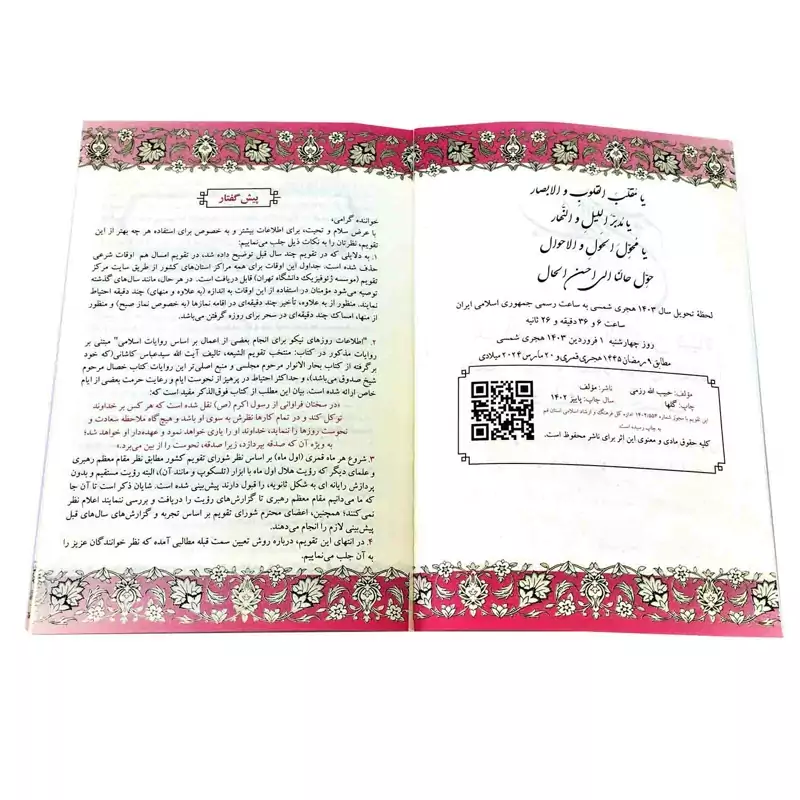 یا مقلب القلوب و الابصار
یا مدبر اللیل و النهار
یا محول الحول و الاحوال
حول حالنا الی احسن الحال
لحظهٔ تحویل سال ۱۴۰۳ هجری شمسی به ساعت رسمی جمهوری اسلامی ایران
ساعت ۶ و ۳۶ دقیقه و ۲۶ ثانیه
روز چهارشنبه ۱ فروردین ۱۴۰۳ هجری شمسی
مطابق ۹ رمضان ۱۴۴۵ هجری قمری و ۲۰ مارس ۲۰۲۴ میلادی
مؤلف: حبیب الله رزمی ناشر: مؤلف
چاپ: گلها سال چاپ: پاییز ۱۴۰۲
این تقویم با مجوز شماره ۱۴۰۲/۵۵۴ اداره کل فرهنگ و ارشاد اسلامی استان قم
به چاپ رسیده است
کلیه حقوق مادی و معنوی این اثر برای ناشر محفوظ است.
پیش گفتار
خواننده گرامی،
با عرض سلام و تحیت، برای اطلاعات بیشتر و به خصوص برای استفاده هر چه بهتر از این
تقویم، نظرتان را به نکات ذیل جلب می‌نماییم:
۱. به دلایلی که در تقویم چند سال قبل توضیح داده شد، در تقویم امسال هم اوقات شرعی
حذف شده است. جداول این اوقات برای همه مراکز استان‌های کشور از سایت مرکز
تقویم (موسسه ژئوفیزیک دانشگاه تهران) قابل دریافت است. در هر حال، مانند سال‌های گذشته
توصیه می‌شود مؤمنان در استفاده از این اوقات به اندازه (به علاوه و منهای) چند دقیقه احتیاط
نمایند. منظور از به علاوه، تأخیر چند دقیقه‌ای در اقامه نمازها (به خصوص نماز صبح) و منظور
از منها، امساک چند دقیقه‌ای در سحر برای روزه گرفتن می‌باشد.
۲. "اطلاعات روزهای نیکو برای انجام بعضی از اعمال بر اساس روایات اسلامی" مبتنی بر
روایات مذکور در کتاب: منتخب تقویم الشیعه، تالیف آیت الله سیدعباس کاشانی(که خود
برگرفته از کتاب بحار الانوار مرحوم مجلسی و منبع اصلی‌تر این روایات کتاب خصال مرحوم
شیخ صدوق می‌باشد)، و حداکثر احتیاط در پرهیز از نحوست ایام و رعایت حرمت بعضی از ایام
خاص ارائه شده است. بیان این مطلب از کتاب فوق‌الذکر مفید است که:
«در سخنان فراوانی از رسول اکرم (ص) نقل شده است که هر کس بر خداوند
توکل کند و در تمام کارها نظرش به سوی او باشد و هیچ‌گاه ملاحظه سعادت و
نحوست روزها را ننماید، خداوند او را یاری خواهد نمود و عهده‌دار او خواهد شد؛
به ویژه آن که صدقه بپردازد، زیرا صدقه، نحوست را از بین می‌برد.»
۳. شروع هر ماه قمری (اول ماه) بر اساس نظر شورای تقویم کشور مطابق نظر مقام معظم رهبری
و علمای دیگر که رؤیت هلال اول ماه با ابزار (تلسکوپ و مانند آن)، البته رؤیت مستقیم و بدون
پردازش رایانه ای به شکل ثانویه، را قبول دارند پیش‌بینی شده است. شایان ذکر است تا آن جا
که ما می‌دانیم مقام معظم رهبری تا گزارش‌های رؤیت را دریافت و بررسی ننمایند اعلام نظر
نمی‌کنند؛ همچنین، اعضای محترم شورای تقویم بر اساس تجربه و گزارش‌های سال‌های قبل
پیش‌بینی لازم را انجام می‌دهند.
۴. در انتهای این تقویم، درباره روش تعیین سمت قبله مطالبی آمده که نظر خوانندگان عزیز را
به آن جلب می‌نماییم.